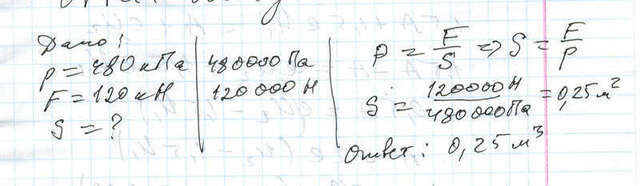 Дано:
p = 480 кПа | 480000 Па
F = 120 кН | 120 000 Н
S = ?
P = F/S => S = F/P
S = 120000 Н/480000 Па = 0,25 м²
Ответ: 0,25 м³